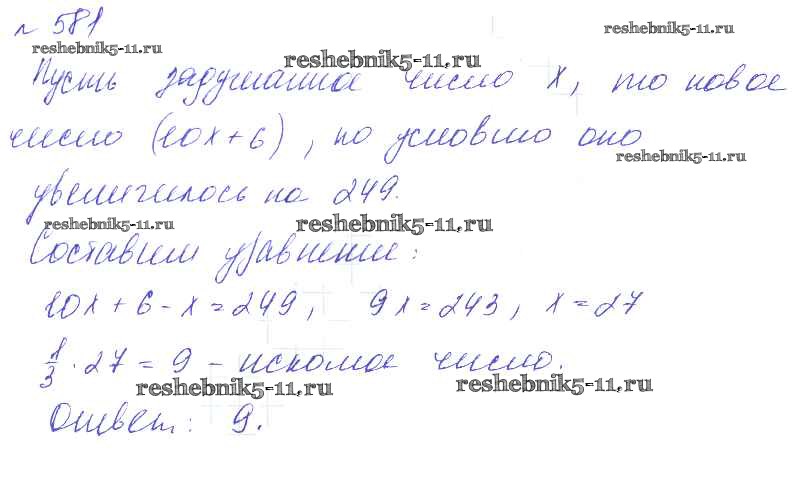 № 581
reshebnik5-11.ru
reshebnik5-11.ru
reshebnik5-11.ru
Пусть задуманное число x, то новое
число (10x+6), по условию оно
reshebnik5-11.ru
увеличилось на 249.
reshebnik5-11.ru
reshebnik5-11.ru
Составим уравнение:
10x + 6 - x = 249, 9x = 243, x = 27
1/3 · 27 = 9 - искомое число.
reshebnik5-11.ru
reshebnik5-11.ru
Ответ: 9.